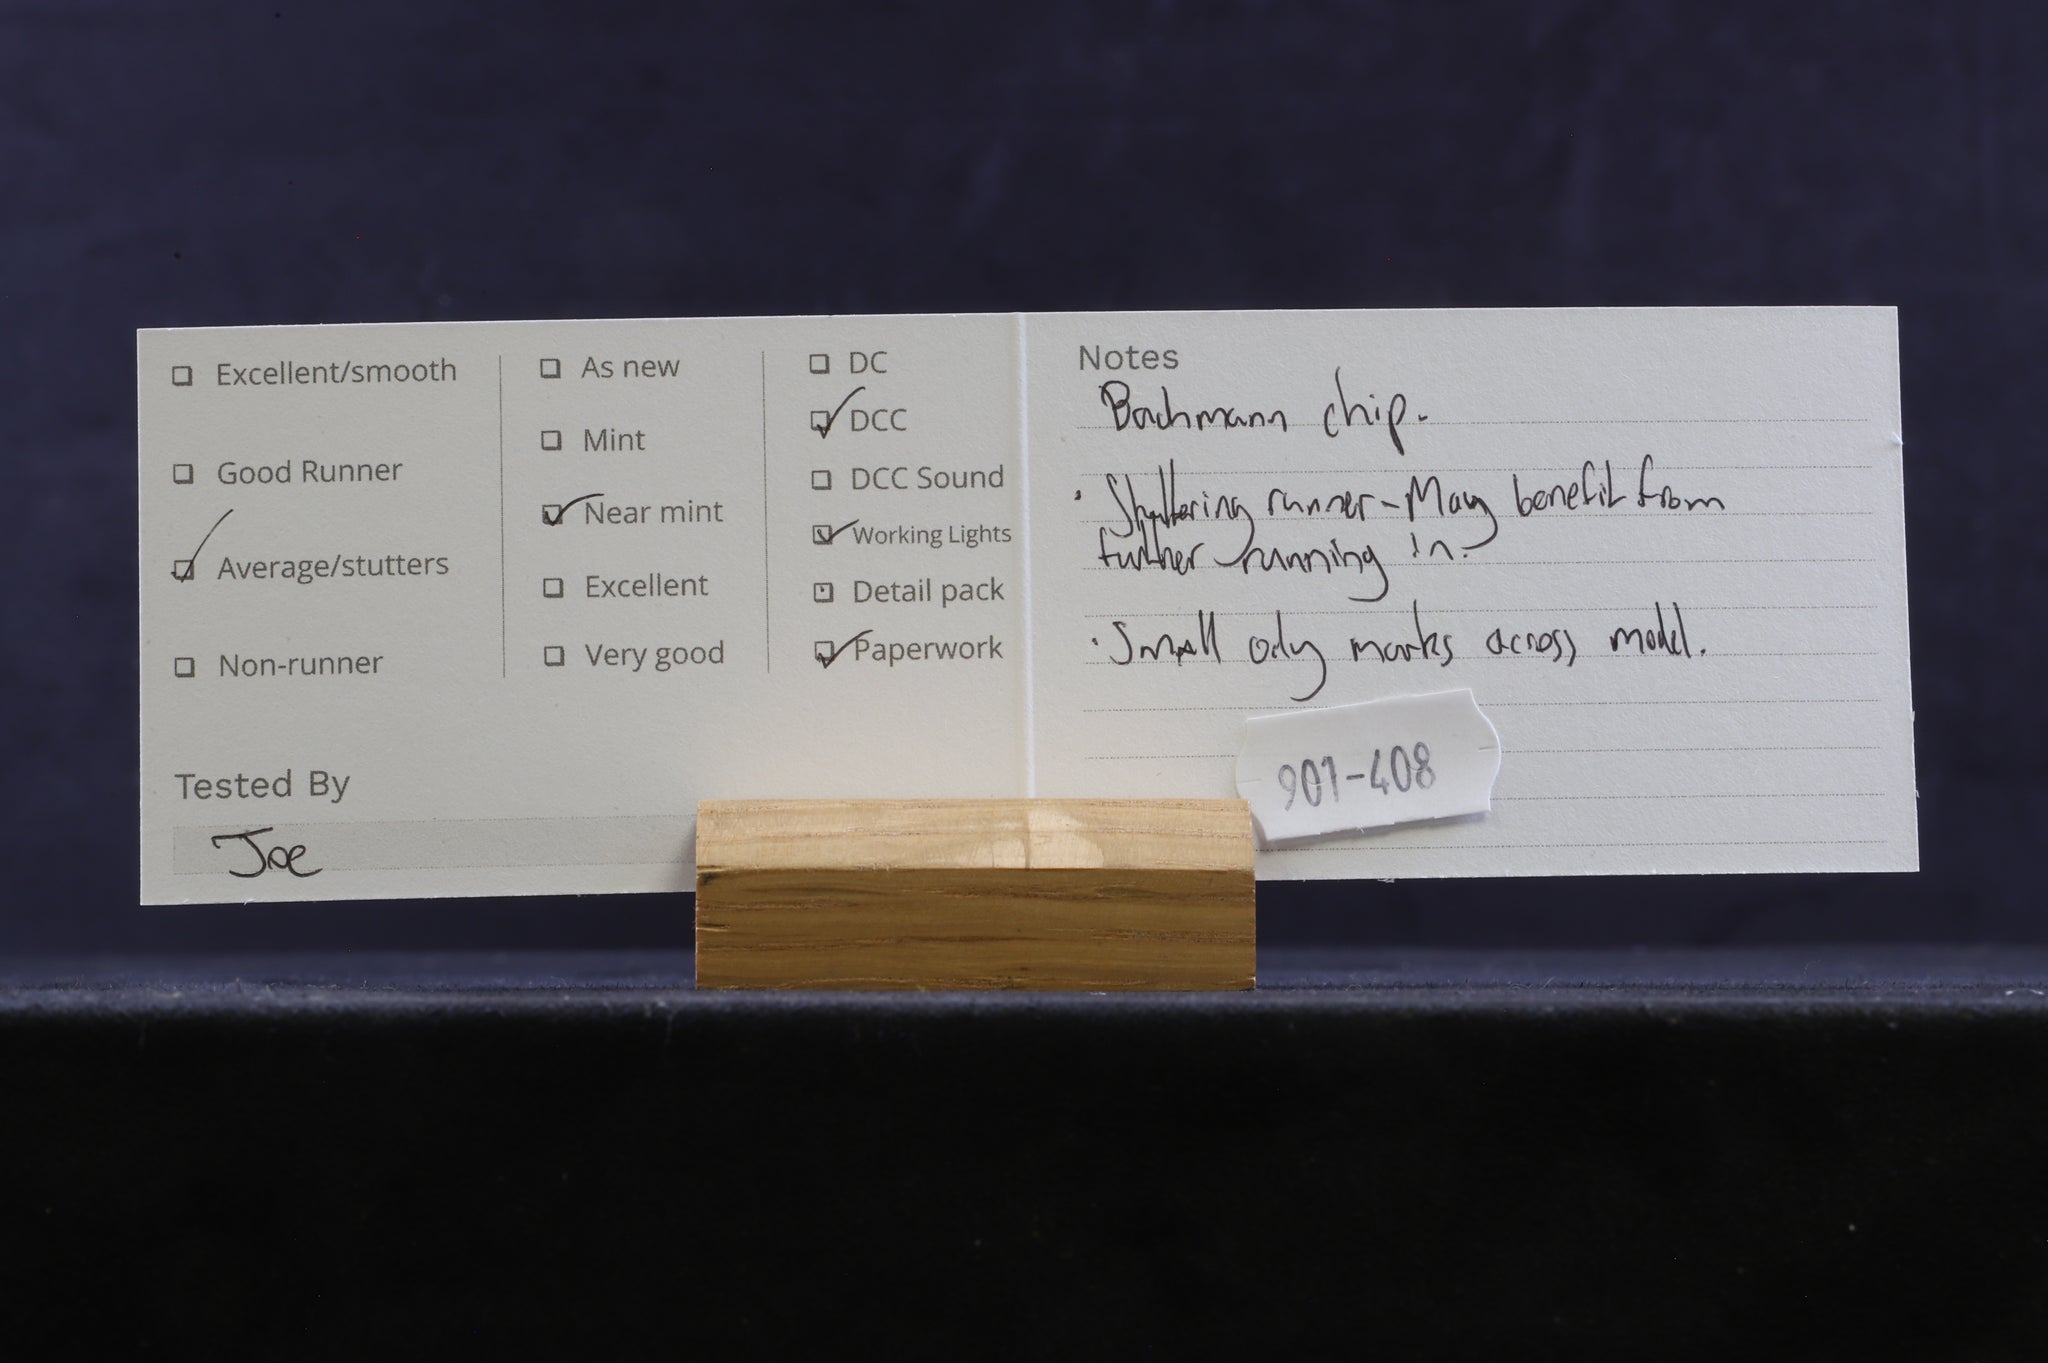 Excellent/smooth
Good Runner
Average/stutters
Non-runner
As new
Mint
Near mint
Excellent
Very good
DC
DCC
DCC Sound
Working Lights
Detail pack
Paperwork
Tested By
Joe
Notes
Bachmann chip.
· Stuttering runner - May benefit from
further running in.
· Small oily marks across model.
901-408